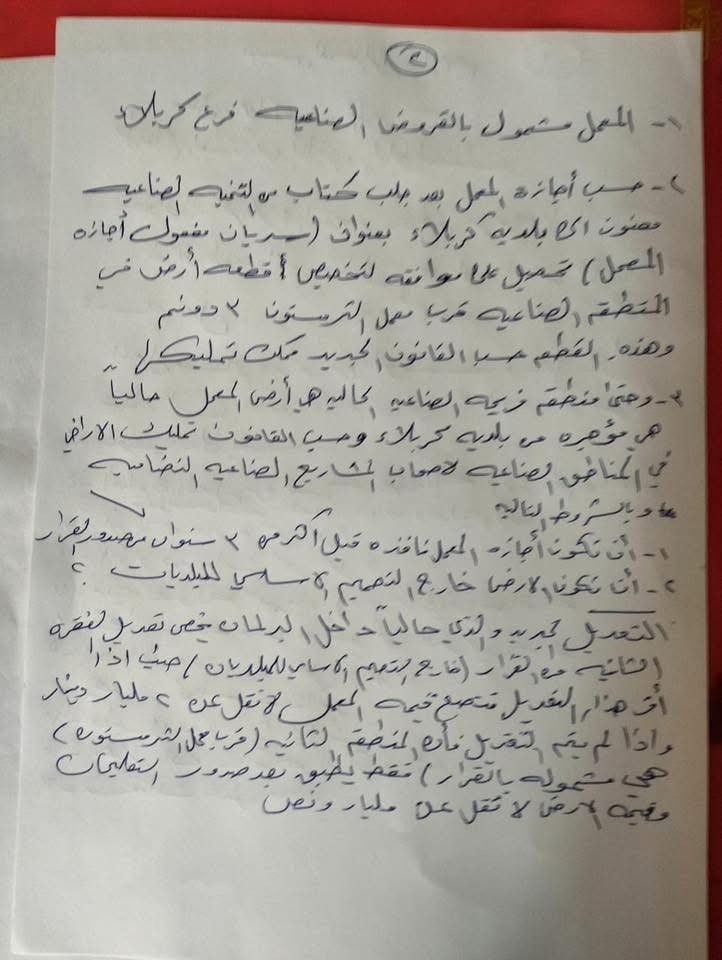 ٢
١- المعمل مشمول بالقروض الصناعيه فرع كربلاء
٢- حسب أجازة المعمل بعد جلب كتاب من التنميه الصناعيه
معنون الى بلديه كربلاء بعنوان (سريان مفعول أجازه
المعمل) تحصيل على موافقه لتخصيص قطعه أرض في
المنطقه الصناعيه قرب معمل الثرمستون ٣ دونم
وهذه القطعه حسب القانون الجديد ممكن تمليكها
٣- وحتى منطقه فريحه الصناعيه الحاليه هي أرض المعمل حالياً
هي مؤجره من بلديه كربلاء وحسب القانون تمليك الاراضي
في المناطق الصناعيه لاصحاب المشاريع الصناعيه
وبالشروط التاليه
١- أن تكون أجازه المعمل نافذه قبل أكثر من ٣ سنوات من صدور القرار
٢- أن تكون الارض خارج التصميم الاساسي للبلديات ؟
التعديل الجديد والذي حالياً داخل البرلمان يخص تعديل الفقره
الثانيه من القرار (خارج التصميم الاساسي للبلديات) حيث اذا
أقر هذا التعديل فتصبح قيمه المعمل لا تقل عن ٢ مليار دينار
واذا لم يتم التعديل فأن المنطقه الثانيه (قرب معمل الثرمستون)
هي مشموله بالقرار) فقط يطبق بعد صدور التعليمات
وقيمه الارض لا تقل عن مليار ونص